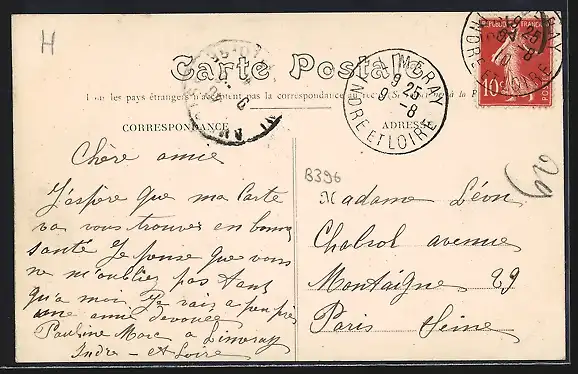 H
Carte Postale
Tous les pays étrangers n'acceptent pas la correspondance
CORRESPONDANCE
ADRESSE
REPUBLIQUE FRANÇAISE
10c
POSTES
LIMERAY
9 25
9 -8
INDRE ET LOIRE
8396
60
Chère amie
J'aspère que ma Carte
va vous trouver en bonne
santé Je pense que vous
ne m'oubliez pas tant
qu'a moi Je vais a peu près
une amie dévouée
Pauline Marc a Limeray
Indre-et Loire
Madame Léon
Chabrol avenue
Montaigne 29
Paris Seine